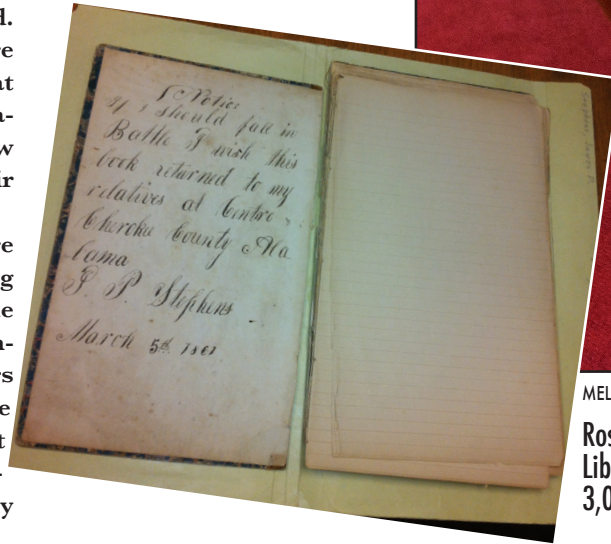 d.
re
at
a-
w
ir
re
g
e
n-
rs
e
t
-
y
Notice
If I should fall in
Battle I wish this
book returned to my
relatives at Centre
Cherokee County Ala
bama
P. Stephens
March 5th 1861
MEL
Ros
Lib
3,0